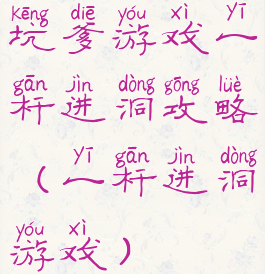 kēng diē yóu xì yī
坑爹游戏一
gān jìn dòng gōng lüè
杆进洞攻略
yī gān jìn dòng
（一杆进洞
yóu xì
游戏）